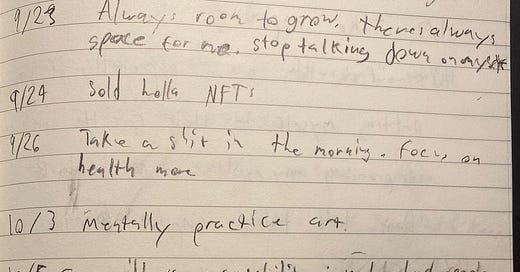 9/23 Always room to grow. theres always
space for me. stop talking down on myself
9/24 Sold hella NFTs
9/26 Take a shit in the morning. Focus on
health more
10/3 Mentally practice art.